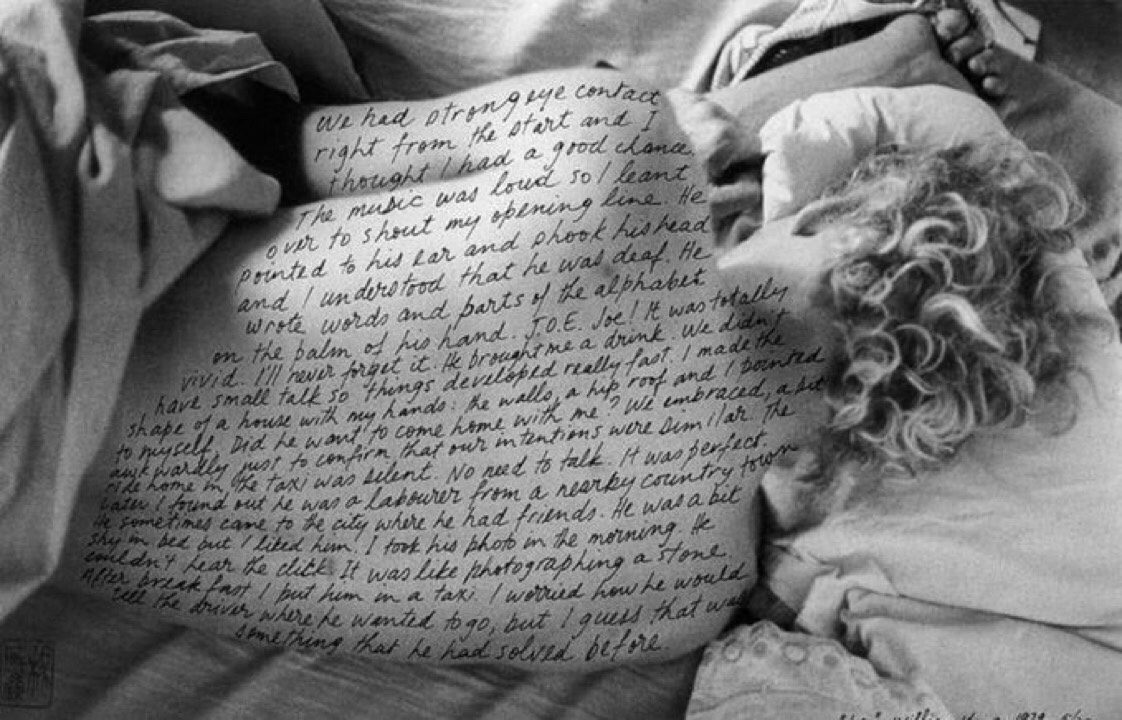 We had strong eye contact
right from the start and I
thought I had a good chance.
The music was loud so I leant
over to shout my opening line. He
pointed to his ear and shook his head
and I understood that he was deaf. He
wrote words and parts of the alphabet
on the palm of his hand. J.O.E. Joe! It was totally
vivid. I'll never forget it. He brought me a drink. We didn't
have small talk so things developed really fast. I made the
shape of a house with my hands: the walls, a hip roof and I pointed
to myself. Did he want to come home with me? We embraced, a bit
awkwardly just to confirm that our intentions were similar. The
ride home in the taxi was silent. No need to talk. It was perfect.
Later I found out he was a labourer from a nearby country town
He sometimes came to the city where he had friends. He was a bit
shy in bed but I liked him. I took his photo in the morning. He
couldn't hear the click. It was like photographing a stone.
After breakfast I put him in a taxi. I worried how he would
tell the driver where he wanted to go, but I guess that was
something that he had solved before.
"Joe" William Yang 1979